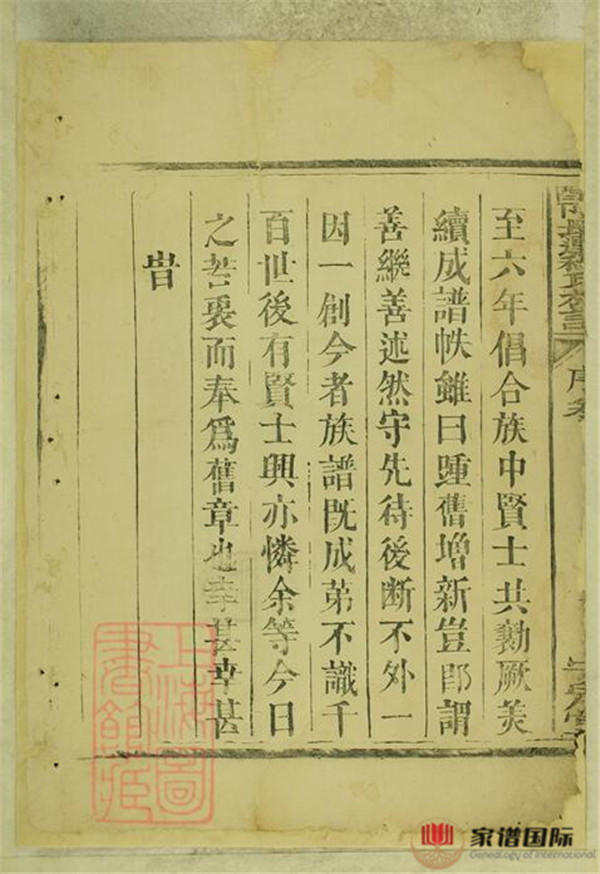 至六年倡合族中賢士共勷厥美
續成譜帙雖曰踵舊增新豈即謂
善繼善述然守先待後断不外一
因一創今者族譜既成第不識千
百世後有賢士興亦憐余等今日
之苦衷而奉爲舊章也幸甚幸甚
旹
氏族譜
序
上海圖書館藏
家谱国际
Genealogy of International